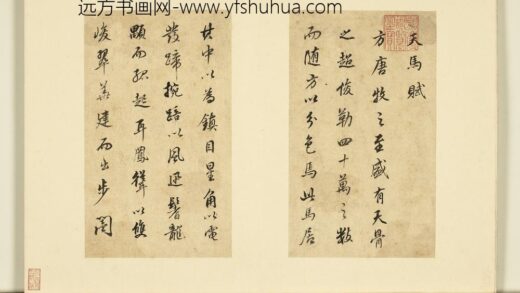 远方书画网-www.yfshuhua.com
天馬賦
方唐牧之至盛有天骨
之超俊勒四十萬之數
而随方以分色焉此馬居
其中以為鎮目星角以電
發蹄椀踣以風迅鬐龍
顒而孤起耳鳳聳以雙
峻翠華建而出步閶